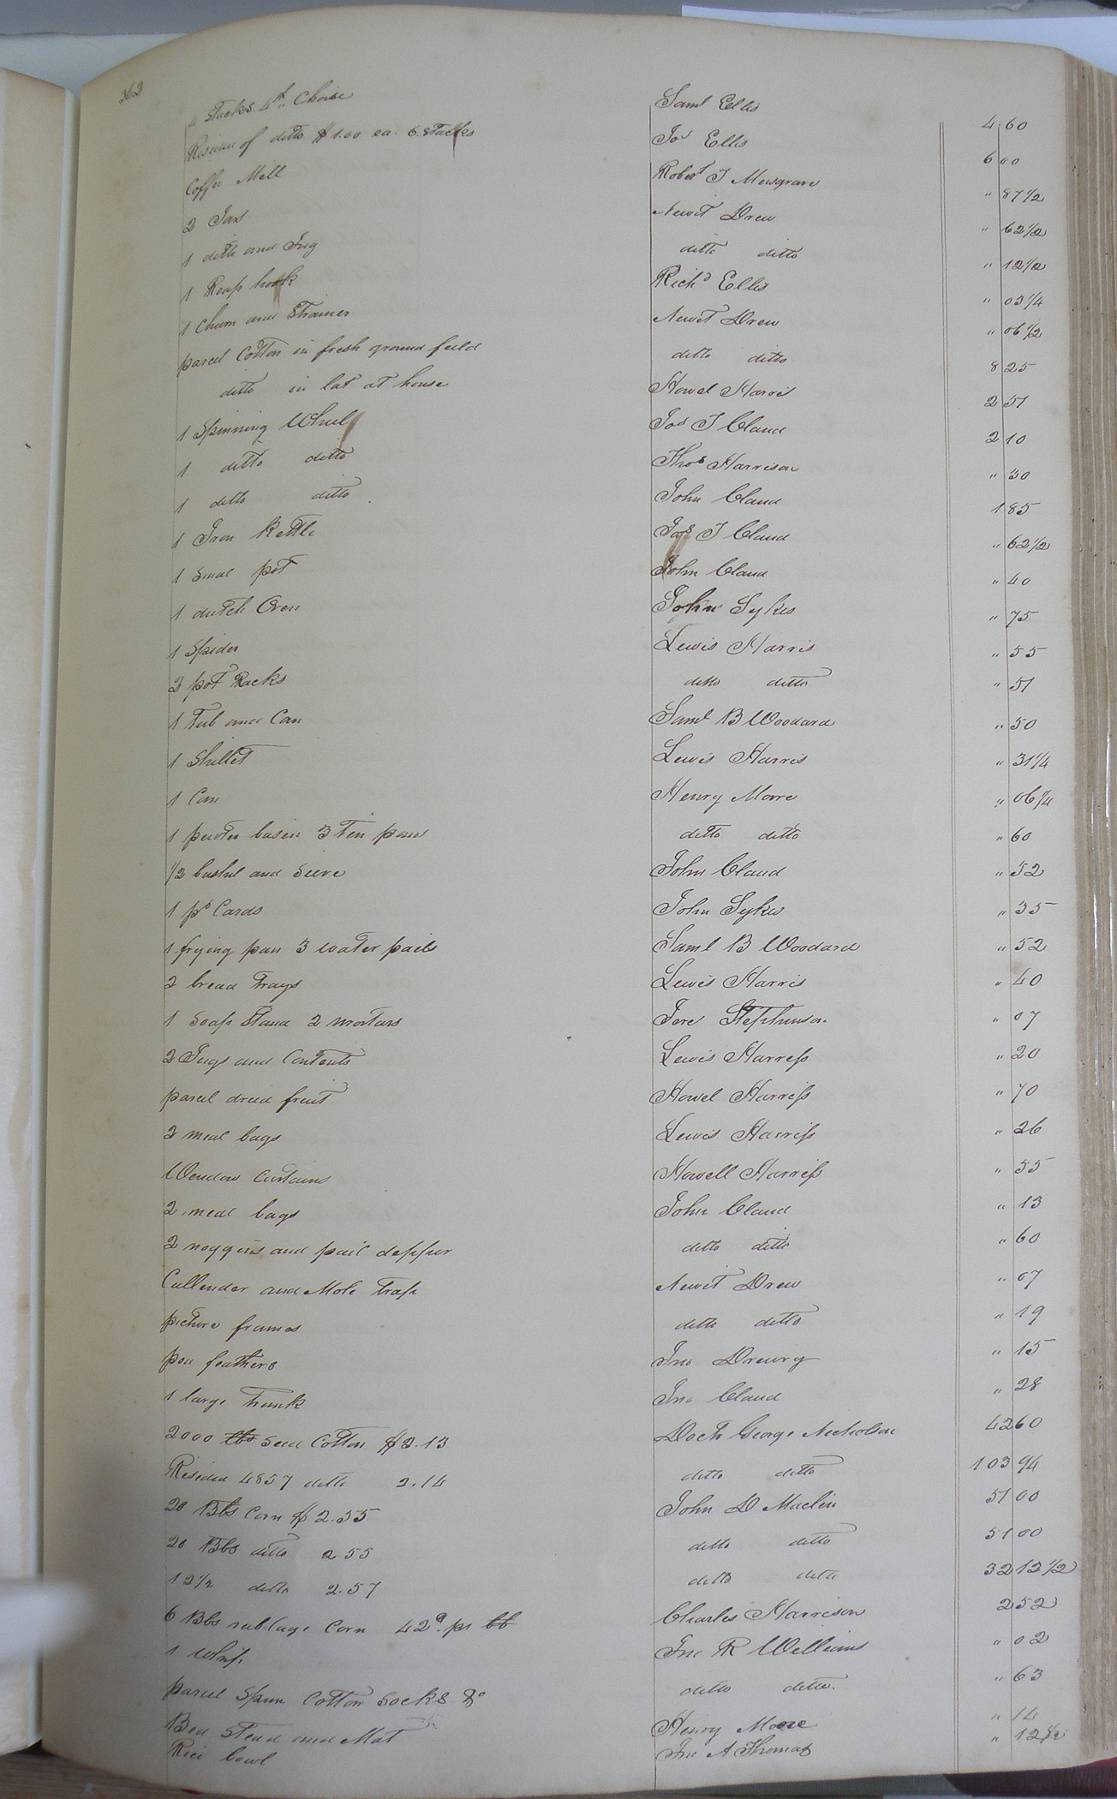 263
Stacks 4th Choice Saml Ellis 4 60
Residue of ditto $1.00 ea. 6 Stacks Jos Ellis 6 00
Coffee Mill Robert T Musgrave " 87 1/2
2 Jars Newit Drew " 62 1/2
1 ditto and Jug ditto ditto " 12 1/2
1 Reap hook Richd Ellis " 03 1/4
1 Churn and Strainer Newit Drew " 06 1/2
parcel Cotton in fresh ground field ditto ditto 8 25
ditto in lot at house Howel Harris 2 51
1 Spinning Wheel Jos T Claud 2 10
1 ditto ditto Thos Harrison " 30
1 ditto ditto John Claud 1 85
1 Iron Kettle Jos T Claud " 62 1/2
1 Smal pot John Claud " 40
1 dutch Oven John Sykes " 75
1 Spider Lewis Harris " 55
2 pot Racks ditto ditto " 51
1 Tub and Can Saml B Woodard " 50
1 Skillet Lewis Harris " 31 1/4
1 Can Henry Moore " 06 1/4
1 pewter basin 3 tin pans ditto ditto " 60
1/2 bushel and Sieve John Claud " 52
1 pr Cards John Sykes " 35
1 frying pan 3 water pails Saml B Woodard " 52
2 bread Trays Lewis Harris " 40
1 Soap Stand 2 mortars Jere Stephenson " 07
2 Jugs and Contents Lewis Harriss " 20
parcel dried fruit Howel Harriss " 70
2 meal bags Lewis Harriss " 26
Window Curtains Howell Harriss " 55
2 meal bags John Claud " 13
2 noggins and pail ditto ditto " 60
Cullender and Mole trap Newit Drew " 07
picture frames ditto ditto " 19
pea feathers Jno Drewry " 15
1 large Trunk Jno Claud " 28
2000 lbs Seed Cotton $2.13 Doctr George Nicholson 42 60
Residue 4857 ditto 2.14 ditto ditto 103 94
20 Bbs Corn $2.55 John D Maclin 51 00
20 Bbs ditto 2 55 ditto ditto 51 00
12 1/2 ditto 2.57 ditto ditto 32 12 1/2
6 Bbs rubbage Corn 42 pr bb Charles Harrison 2 52
1 Whip Jno R Williams " 02
parcel Spun Cotton Socks &c ditto ditto " 63
Bed Stead and Mat Henry Moore " 14
Rice bowl Jno A Thomas " 12 1/2